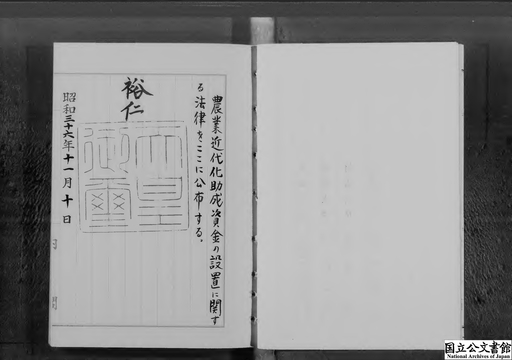 農業近代化助成資金の設置に関す
る法律をここに公布する。
裕仁
天皇御璽
昭和三十六年十一月十日
国立公文書館
National Archives of Japan